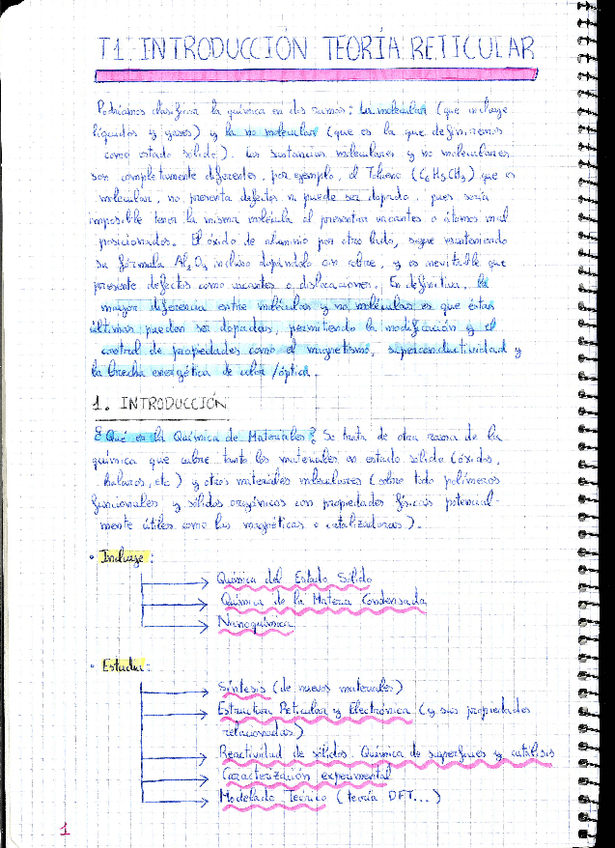 T1 INTRODUCCIÓN TEORÍA RETICULAR
Podríamos clasificar la química en dos ramas: la molecular (que incluye
líquidos y gases) y la no molecular (que es la que definiremos
como estado sólido). Las sustancias moleculares y no moleculares
son completamente diferentes, por ejemplo, el Tolueno (C6H5CH3) que es
molecular, no presenta defectos ni puede ser dopado, pues sería
imposible tener la misma molécula al presentar vacantes o átomos mal
posicionados. El óxido de aluminio por otro lado, sigue manteniendo
su fórmula Al2O3 incluso dopándolo con cobre, y es inevitable que
presente defectos como vacantes o dislocaciones. En definitiva, la
mayor diferencia entre moléculas y no moléculas es que éstas
últimas pueden ser dopadas, permitiendo la modificación y el
control de propiedades como el magnetismo, superconductividad y
la brecha energética de color/óptica.
1. INTRODUCCIÓN
¿Qué es la Química de Materiales? Se trata de otra rama de la
química que cubre tanto los materiales en estado sólido (óxidos,
haluros, etc) y otros materiales moleculares (sobre todo polímeros
funcionales y sólidos orgánicos con propiedades físicas potencial-
mente útiles como las magnéticas o catalizadoras).
• Incluye:
Química del Estado Sólido
Química de la Materia Condensada
Nanoquímica
• Estudia:
Síntesis (de nuevos materiales)
Estructura Reticular y Electrónica (y sus propiedades
relacionadas)
Reactividad de sólidos. Química de superficies y catálisis
Caracterización experimental
Modelado Teórico (teoría DFT...)
1